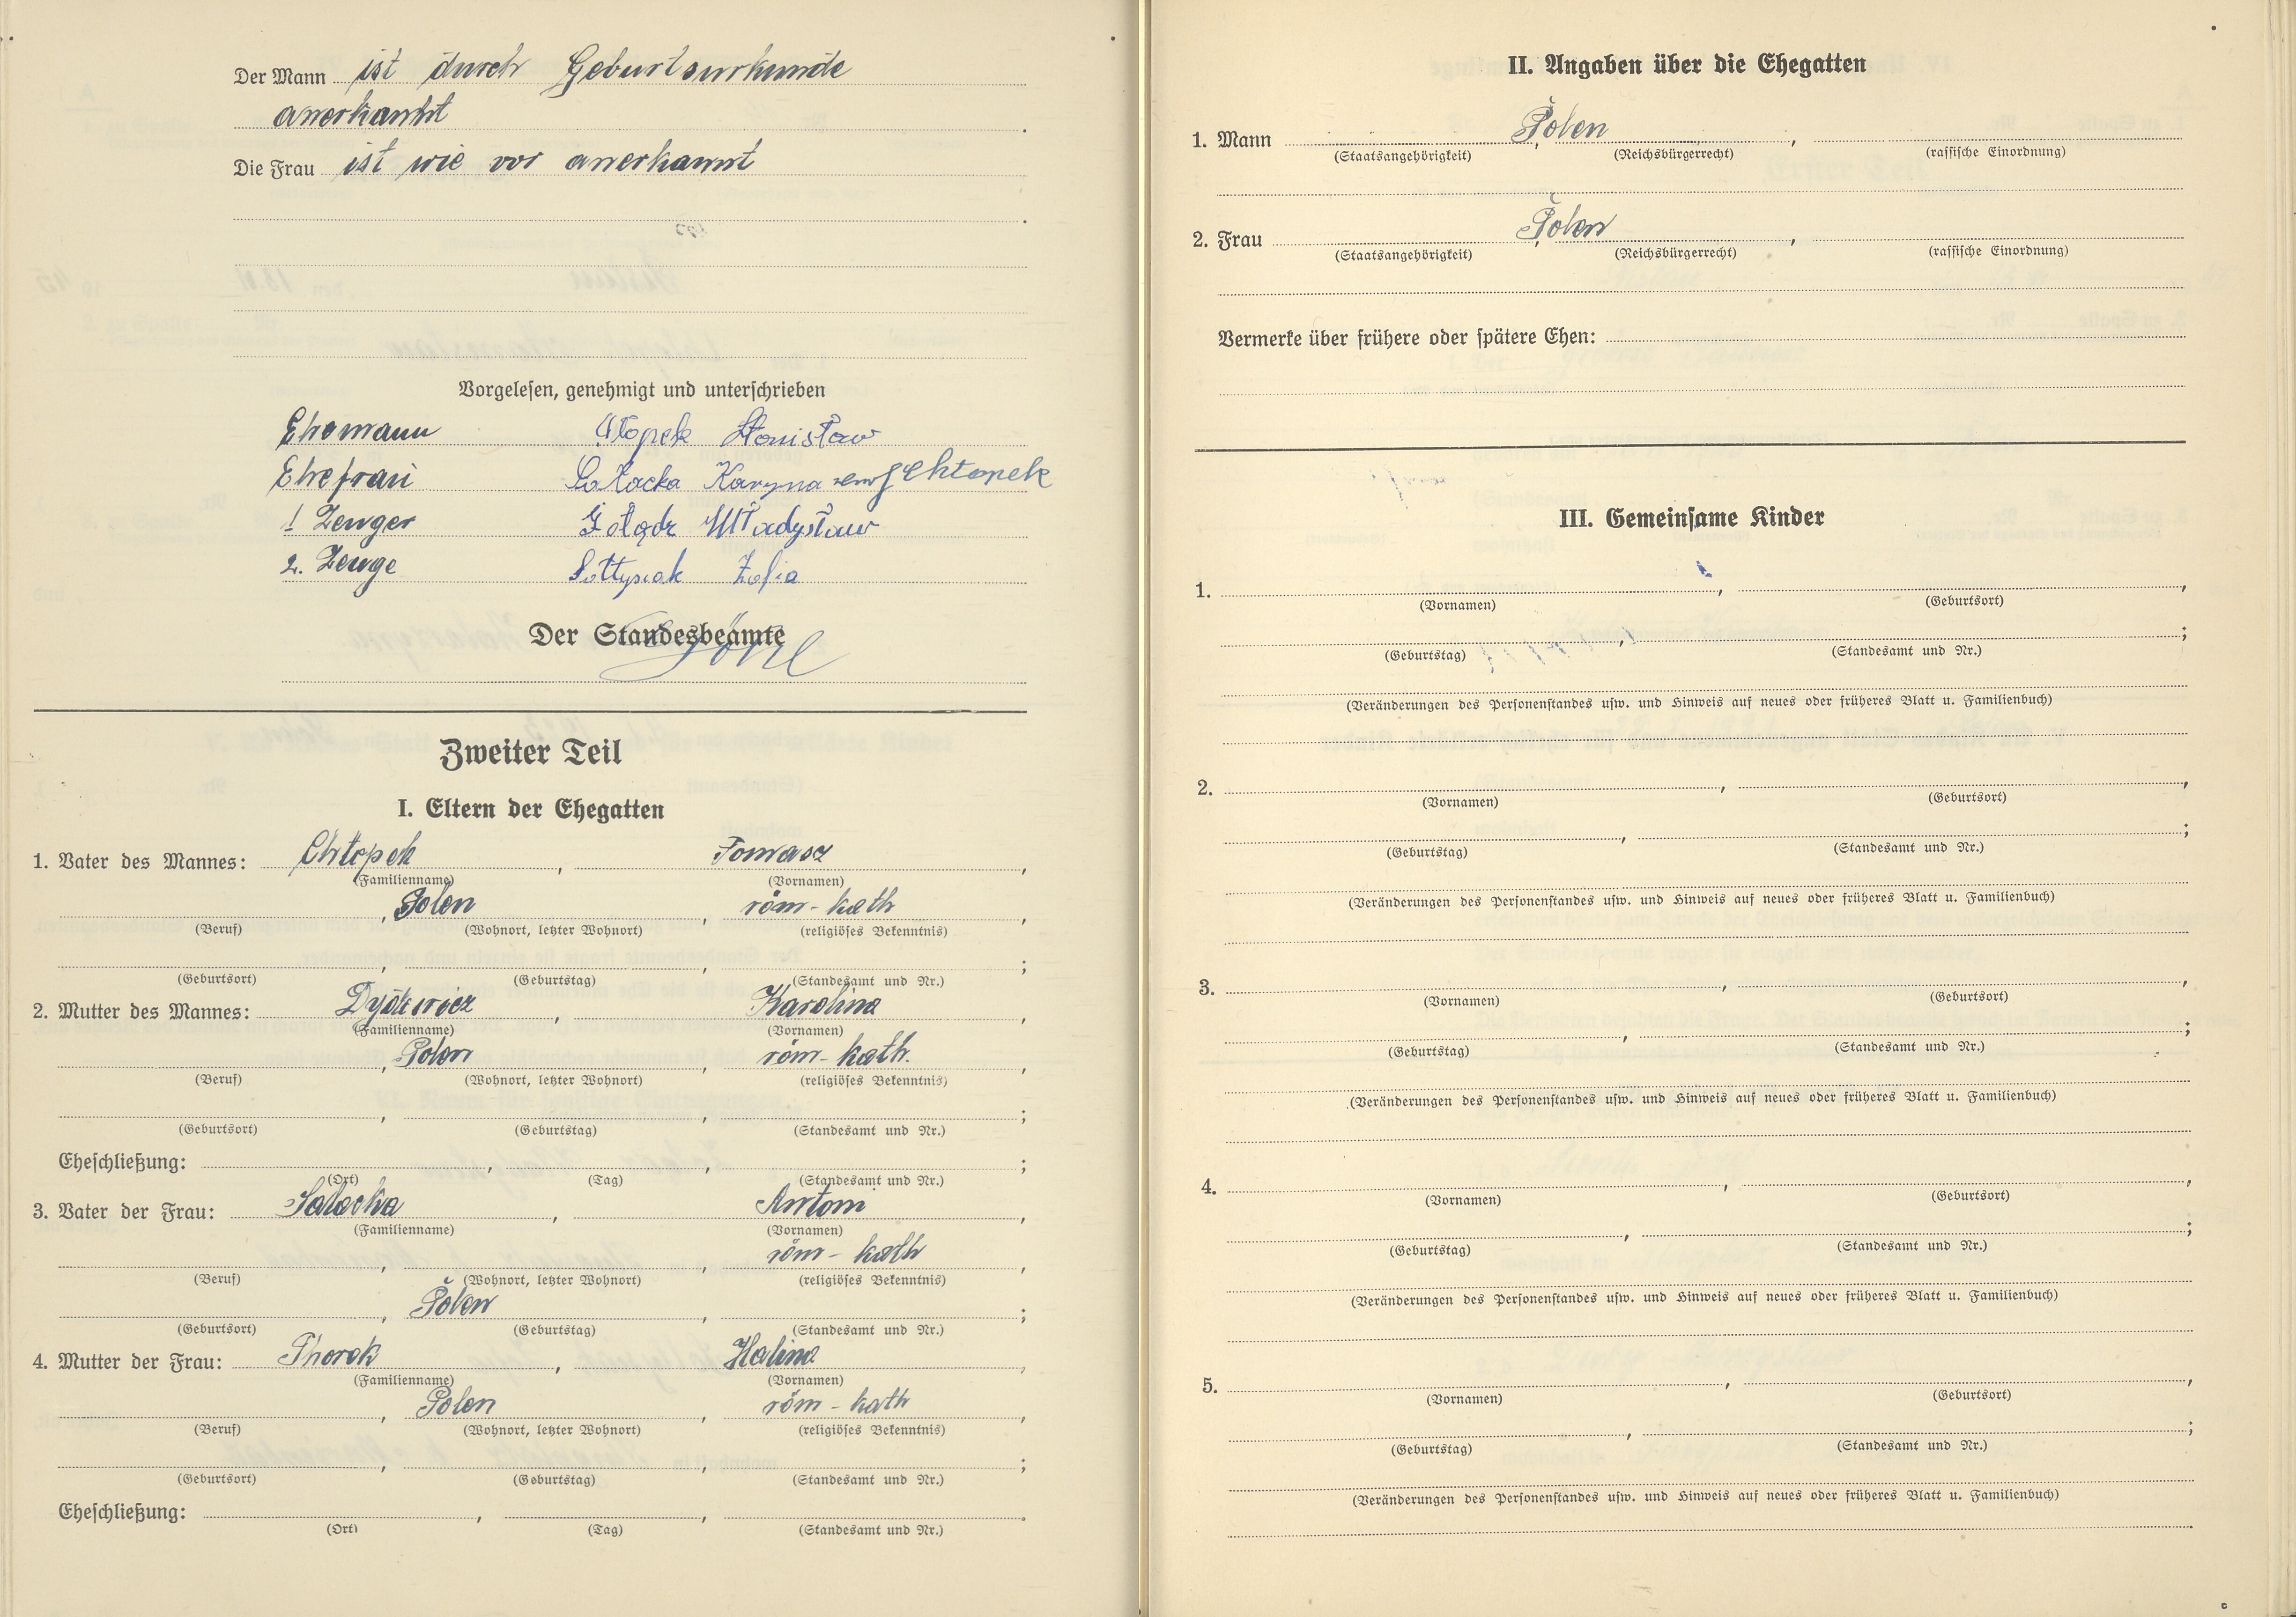 Der Mann ist durch Geburtsurkunde
anerkannt
Die Frau ist wie vor anerkannt
Vorgelesen, genehmigt und unterschrieben
Ehemann Chłopek Stanisław
Ehefrau Sałacka Chłopek
1 Zeuger Żołądz Władysław
2. Zeuge Sołtysiak Zofia
Der Standesbeamte
Zweiter Teil
I. Eltern der Ehegatten
1. Vater des Mannes: Chłopek, Tomasz,
(Familienname) (Vornamen)
, Polen, röm-kath,
(Beruf) (Wohnort, letzter Wohnort) (religiöses Bekenntnis)
, , ;
(Geburtsort) (Geburtstag) (Standesamt und Nr.)
2. Mutter des Mannes: , Karolina,
(Familienname) (Vornamen)
, Polen, röm-kath.,
(Beruf) (Wohnort, letzter Wohnort) (religiöses Bekenntnis)
, , ;
(Geburtsort) (Geburtstag) (Standesamt und Nr.)
Eheschließung: , , ;
(Ort) (Tag) (Standesamt und Nr.)
3. Vater der Frau: Sałacka, Antoni,
(Familienname) (Vornamen)
, , röm-kath,
(Beruf) (Wohnort, letzter Wohnort) (religiöses Bekenntnis)
, Polen, ;
(Geburtsort) (Geburtstag) (Standesamt und Nr.)
4. Mutter der Frau: , Halina,
(Familienname) (Vornamen)
, Polen, röm-kath,
(Beruf) (Wohnort, letzter Wohnort) (religiöses Bekenntnis)
, , ;
(Geburtsort) (Geburtstag) (Standesamt und Nr.)
Eheschließung: , , .
(Ort) (Tag) (Standesamt und Nr.)
II. Angaben über die Ehegatten
1. Mann Polen, ,
(Staatsangehörigkeit) (Reichsbürgerrecht) (rassische Einordnung)
2. Frau Polen, ,
(Staatsangehörigkeit) (Reichsbürgerrecht) (rassische Einordnung)
Vermerke über frühere oder spätere Ehen:
III. Gemeinsame Kinder
1. , ,
(Vornamen) (Geburtsort)
, ;
(Geburtstag) (Standesamt und Nr.)
(Veränderungen des Personenstandes usw. und Hinweis auf neues oder früheres Blatt u. Familienbuch)
2. , ,
(Vornamen) (Geburtsort)
, ;
(Geburtstag) (Standesamt und Nr.)
(Veränderungen des Personenstandes usw. und Hinweis auf neues oder früheres Blatt u. Familienbuch)
3. , ,
(Vornamen) (Geburtsort)
, ;
(Geburtstag) (Standesamt und Nr.)
(Veränderungen des Personenstandes usw. und Hinweis auf neues oder früheres Blatt u. Familienbuch)
4. , ,
(Vornamen) (Geburtsort)
, ;
(Geburtstag) (Standesamt und Nr.)
(Veränderungen des Personenstandes usw. und Hinweis auf neues oder früheres Blatt u. Familienbuch)
5. , ,
(Vornamen) (Geburtsort)
, ;
(Geburtstag) (Standesamt und Nr.)
(Veränderungen des Personenstandes usw. und Hinweis auf neues oder früheres Blatt u. Familienbuch)